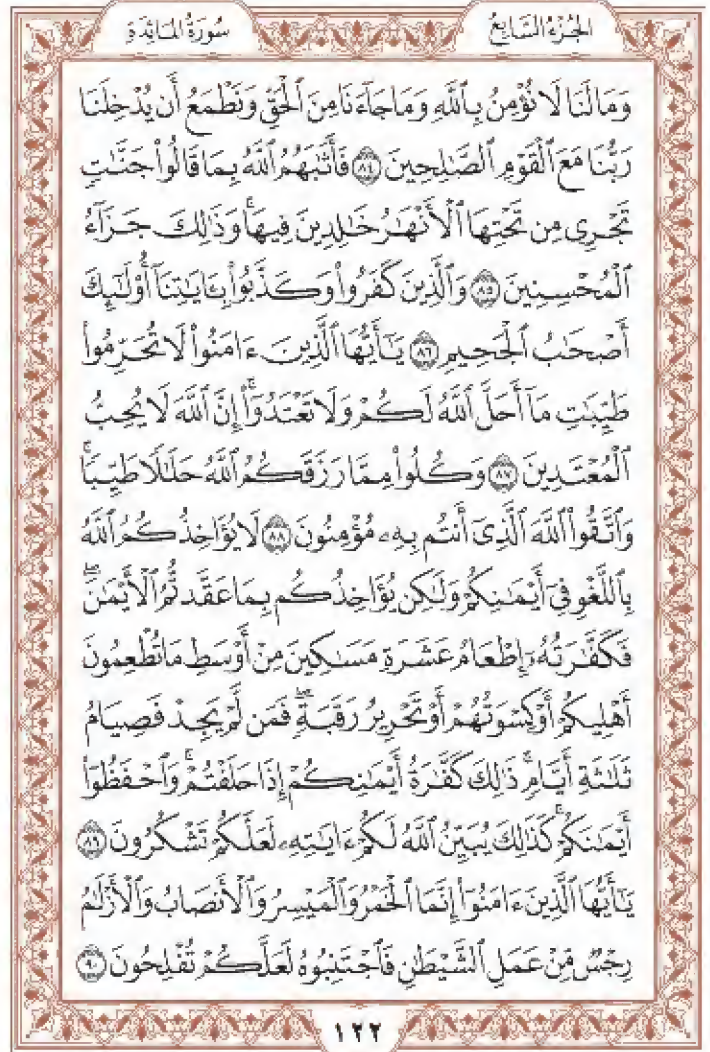 سُورَةُ المَائِدَةِ
الجُزْءُ السَّابِعُ
وَمَالَنَا لَا نُؤْمِنُ بِٱللَّهِ وَمَاجَآءَنَا مِنَ ٱلْحَقِّ وَنَطْمَعُ أَن يُدْخِلَنَا
رَبُّنَا مَعَ ٱلْقَوْمِ ٱلصَّٰلِحِينَ ٨٤ فَأَثَٰبَهُمُ ٱللَّهُ بِمَا قَالُوا۟ جَنَّٰتٍ
تَجْرِى مِن تَحْتِهَا ٱلْأَنْهَٰرُ خَٰلِدِينَ فِيهَا ۚ وَذَٰلِكَ جَزَآءُ
ٱلْمُحْسِنِينَ ٨٥ وَٱلَّذِينَ كَفَرُوا۟ وَكَذَّبُوا۟ بِـَٔايَٰتِنَآ أُو۟لَٰٓئِكَ
أَصْحَٰبُ ٱلْجَحِيمِ ٨٦ يَٰٓأَيُّهَا ٱلَّذِينَ ءَامَنُوا۟ لَا تُحَرِّمُوا۟
طَيِّبَٰتِ مَآ أَحَلَّ ٱللَّهُ لَكُمْ وَلَا تَعْتَدُوٓا۟ ۚ إِنَّ ٱللَّهَ لَا يُحِبُّ
ٱلْمُعْتَدِينَ ٨٧ وَكُلُوا۟ مِمَّا رَزَقَكُمُ ٱللَّهُ حَلَٰلًا طَيِّبًا ۚ
وَٱتَّقُوا۟ ٱللَّهَ ٱلَّذِىٓ أَنتُم بِهِۦ مُؤْمِنُونَ ٨٨ لَا يُؤَاخِذُكُمُ ٱللَّهُ
بِٱللَّغْوِ فِىٓ أَيْمَٰنِكُمْ وَلَٰكِن يُؤَاخِذُكُم بِمَا عَقَّدتُّمُ ٱلْأَيْمَٰنَ ۖ
فَكَفَّٰرَتُهُۥٓ إِطْعَامُ عَشَرَةِ مَسَٰكِينَ مِنْ أَوْسَطِ مَا تُطْعِمُونَ
أَهْلِيكُمْ أَوْ كِسْوَتُهُمْ أَوْ تَحْرِيرُ رَقَبَةٍ ۖ فَمَن لَّمْ يَجِدْ فَصِيَامُ
ثَلَٰثَةِ أَيَّامٍ ۚ ذَٰلِكَ كَفَّٰرَةُ أَيْمَٰنِكُمْ إِذَا حَلَفْتُمْ ۚ وَٱحْفَظُوٓا۟
أَيْمَٰنَكُمْ ۚ كَذَٰلِكَ يُبَيِّنُ ٱللَّهُ لَكُمْ ءَايَٰتِهِۦ لَعَلَّكُمْ تَشْكُرُونَ ٨٩
يَٰٓأَيُّهَا ٱلَّذِينَ ءَامَنُوٓا۟ إِنَّمَا ٱلْخَمْرُ وَٱلْمَيْسِرُ وَٱلْأَنصَابُ وَٱلْأَزْلَٰمُ
رِجْسٌ مِّنْ عَمَلِ ٱلشَّيْطَٰنِ فَٱجْتَنِبُوهُ لَعَلَّكُمْ تُفْلِحُونَ ٩٠
١٢٢